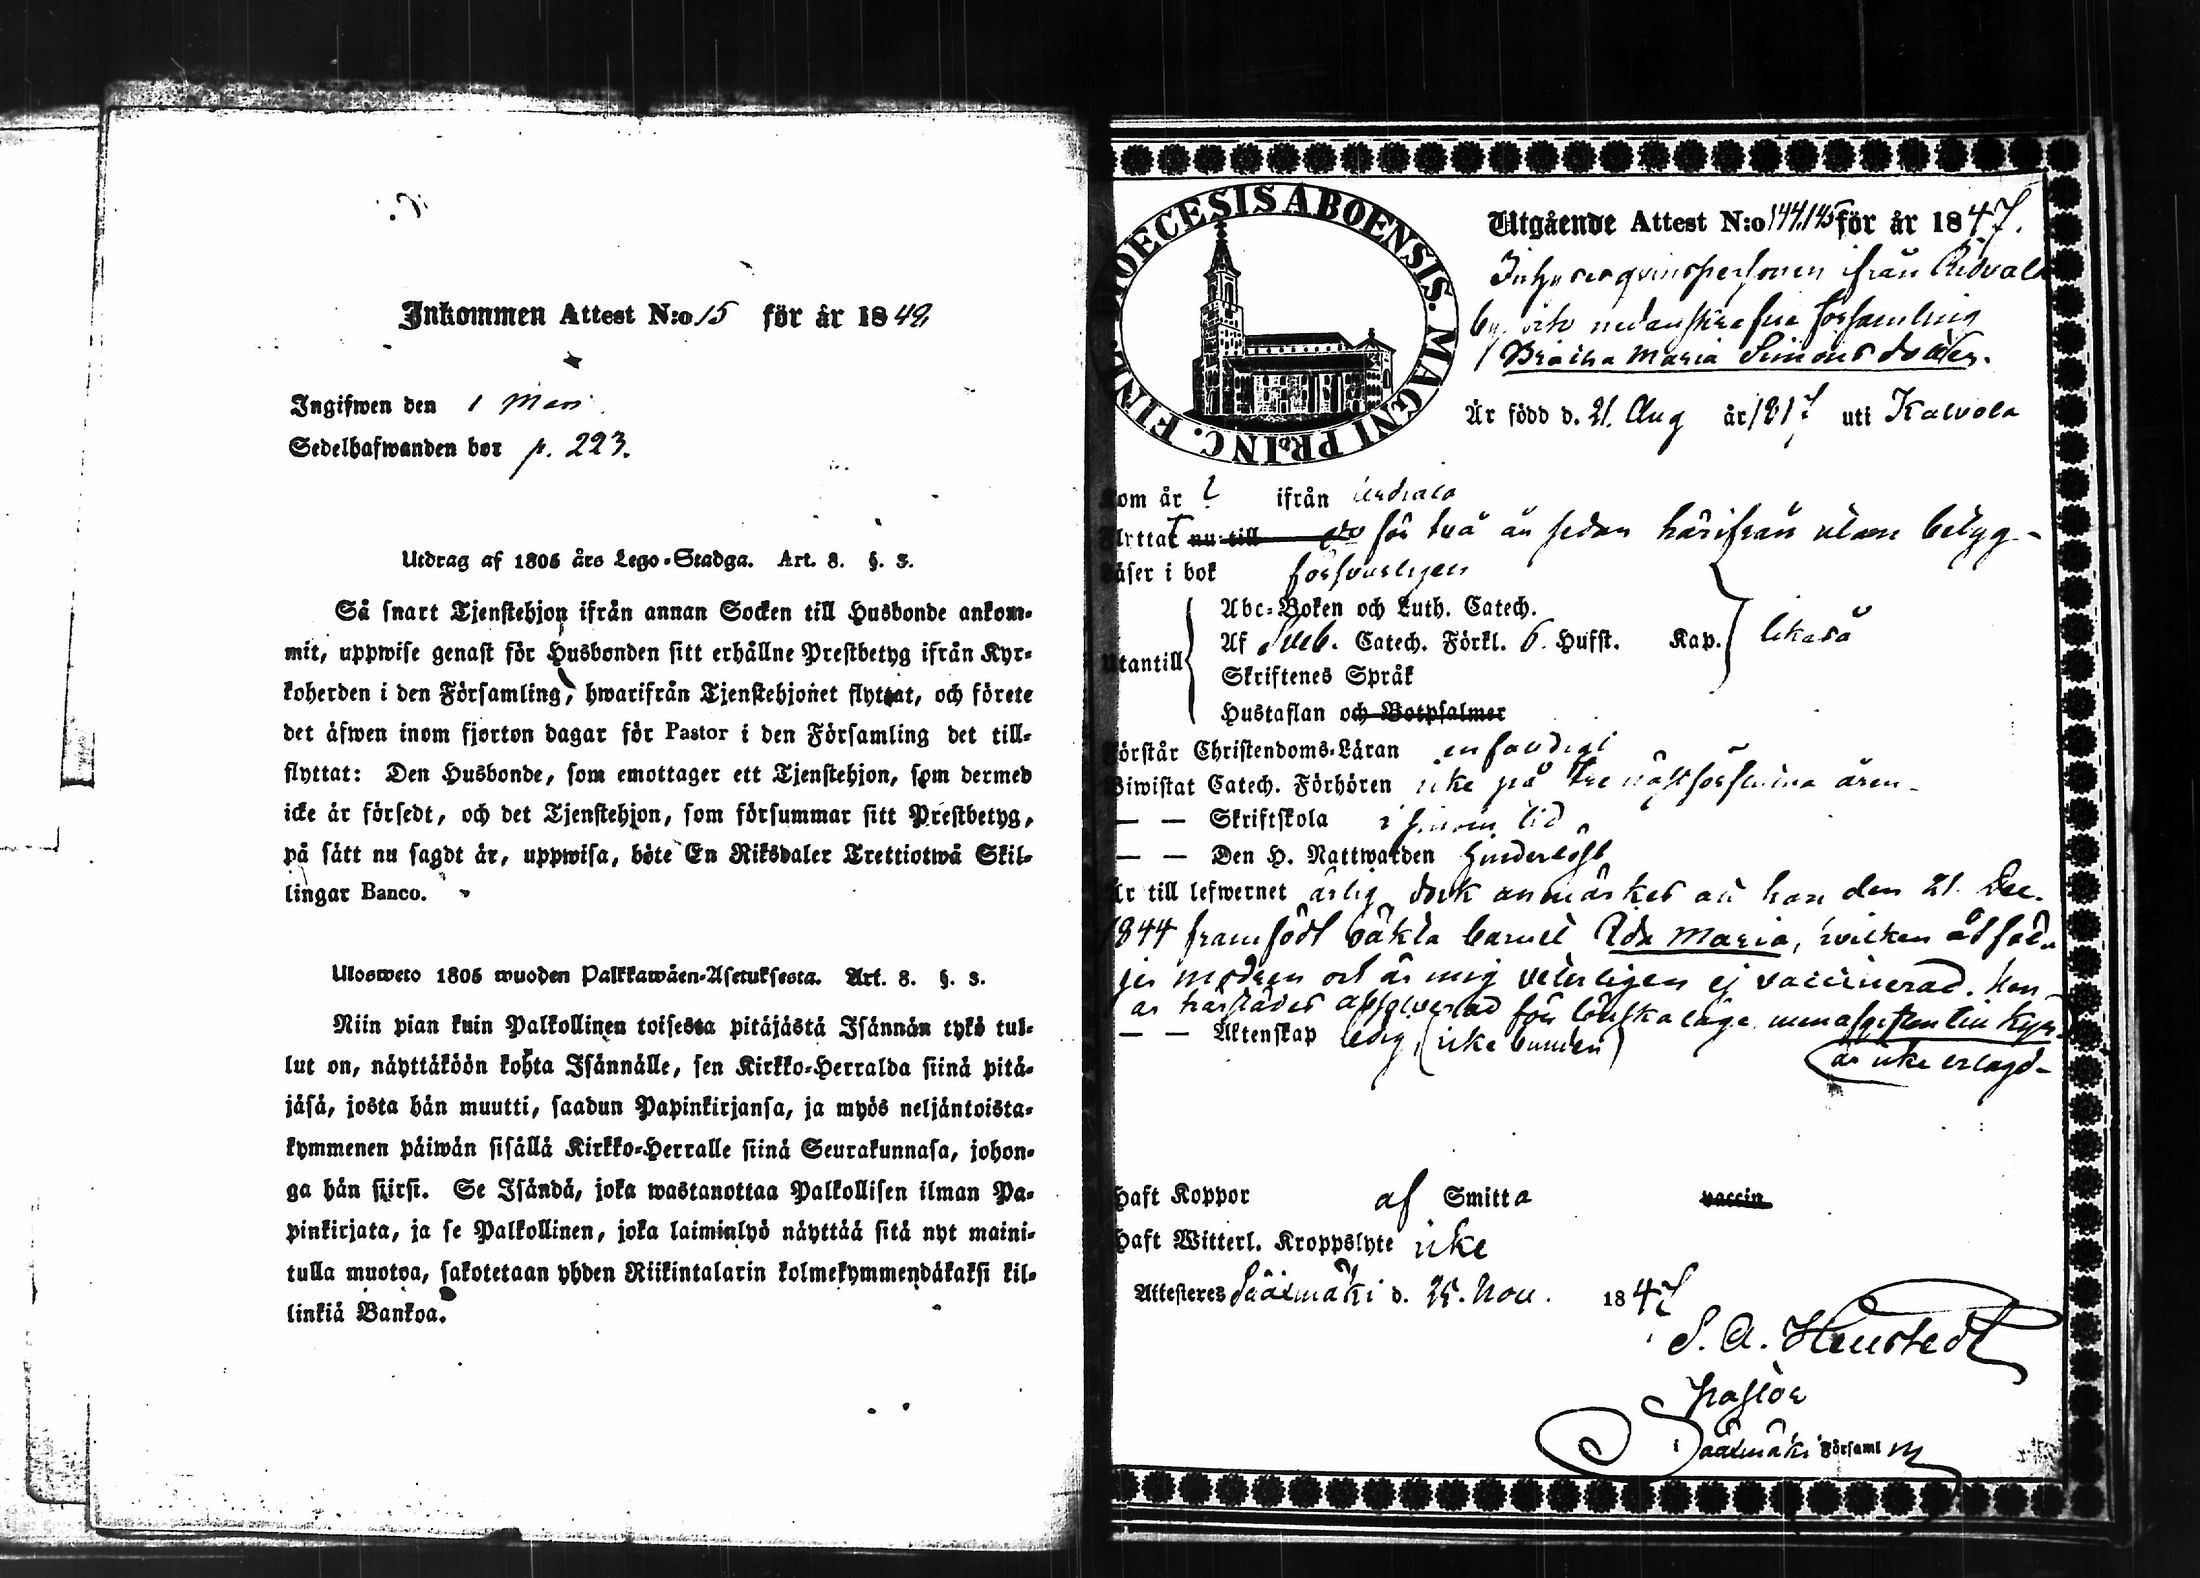 Inkommen Attest N:o 15 för år 1848
Ingifwen den 1 Mars
Sedelhafwanden bor p. 223.
Utdrag af 1805 års Lego-Stadga. Art. 8. §. 3.
Så snart Tjenstehjon ifrån annan Socken till Husbonde ankom-
mit, uppwise genast för Husbonden sitt erhållne Prestbetyg ifrån Kyr-
koherden i den Församling, hwarifrån Tjenstehjonet flyttat, och förete
det äfwen inom fjorton dagar för Pastor i den Församling det till-
flyttat: Den Husbonde, som emottager ett Tjenstehjon, som dermed
icke är försedt, och det Tjenstehjon, som försummar sitt Prestbetyg,
på sätt nu sagdt är, uppwisa, böte En Riksdaler Trettiotwå Skil-
lingar Banco.
Ulosweto 1805 wuoden Palkkawäen-Asetuksesta. Art. 8. §. 3.
Niin pian kuin Palkollinen toisesta pitäjästä Isännän tykö tul-
lut on, näyttäköön kohta Isännälle, sen Kirkko-Herralda siinä pitä-
jäsä, josta hän muutti, saadun Papinkirjansa, ja myös neljäntoista-
kymmenen päiwän sisällä Kirkko-Herralle siinä Seurakunnasa, johon-
ga hän siirsi. Se Isändä, joka wastanottaa Palkollisen ilman Pa-
pinkirjata, ja se Palkollinen, joka laiminlyö näyttää sitä nyt maini-
tulla muotoa, sakotetaan yhden Riikintalarin kolmekymmendäkaksi kil-
linkiä Bankoa.
DIOECESIS ABOENSIS. MAGNI PRINC. FINL.
Utgående Attest N:o 144.145 för år 1847.
Inhysesqvinspersonen ifrån Ridvala
by och nedanskrefne församling
Maria Simonsdotter.
Är född d. 21. Aug år 1817 uti Kalvola
Kom år ? ifrån
Flyttat nu till för två år sedan härifrån utan betyg-
Läser i bok försvarligen
Abc-Boken och Luth. Catech.
Utantill Af Sveb. Catech. Förkl. 6. Hufst. Kap. likaså
Skriftenes Språk
Hustaflan och Botpsalmer
Förstår Christendoms-Läran enfaldigt
Biwistat Catech. Förhören icke på tre nästförflutna åren-
— — Skriftskola i sinom tid
— — Den H. Nattwarden hinderlöst
Är till lefwernet ärlig, dock anmärkes att hon den 21. Dec.
1844 framfödt oäkta barnet Ida Maria, hvilken åtföl-
jer modren och är mig veterligen ej vaccinerad. hon
är härstädes absolverad för lönskaläge, men afgiften till Kyrk.
är icke erlagd-
— — Äktenskap ledig (icke bunden)
Haft Koppor af Smitta vaccin
Haft Witterl. Kroppslyte icke
Attesteres Sääxmäki d. 25. Nov. 1847
Pastor
i Sääxmäki Församl